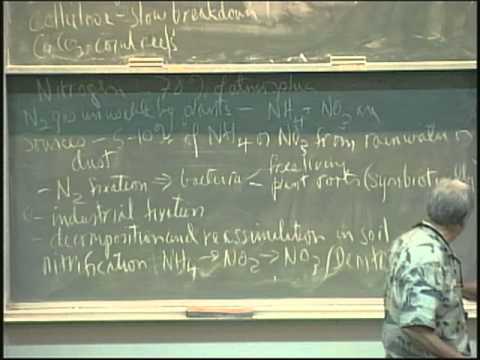 Cellulose - slow breakdown
CaCO3 = coral reefs
Nitrogen - 78% of atmosphere
N2 gas unusable by plants - NH4+ NO3
Sources - 5-10% of NH4 or NO3 from rainwater or
dust
- N2 fixation ⇒ bacteria < free living
plant roots (symbiotically)
- industrial fixation
- decomposition and reassimilation in soil
nitrification NH4 → NO2 → NO3 /Denitri